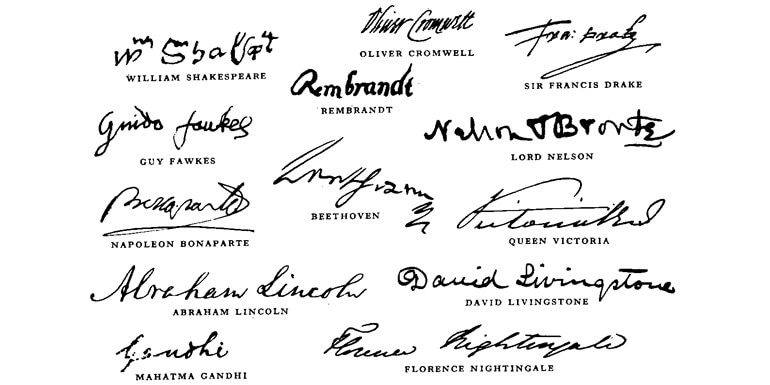 Oliver Cromwell
OLIVER CROMWELL
Wm Shakspt
WILLIAM SHAKESPEARE
Fra: Drake
SIR FRANCIS DRAKE
Rembrandt
REMBRANDT
Guido fawkes
GUY FAWKES
Nelson & Bronte
LORD NELSON
BEETHOVEN
Bonaparte
NAPOLEON BONAPARTE
Victoria R
QUEEN VICTORIA
Abraham Lincoln
ABRAHAM LINCOLN
David Livingstone
DAVID LIVINGSTONE
Gandhi
MAHATMA GANDHI
Florence Nightingale
FLORENCE NIGHTINGALE